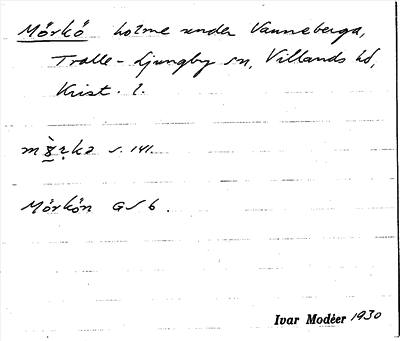 Mörkö holme under Vanneberga,
Trolle-Ljungby sn, Villands hd,
Krist. l.
s. 141.
Mörkön GS 6.
Ivar Modéer 1930